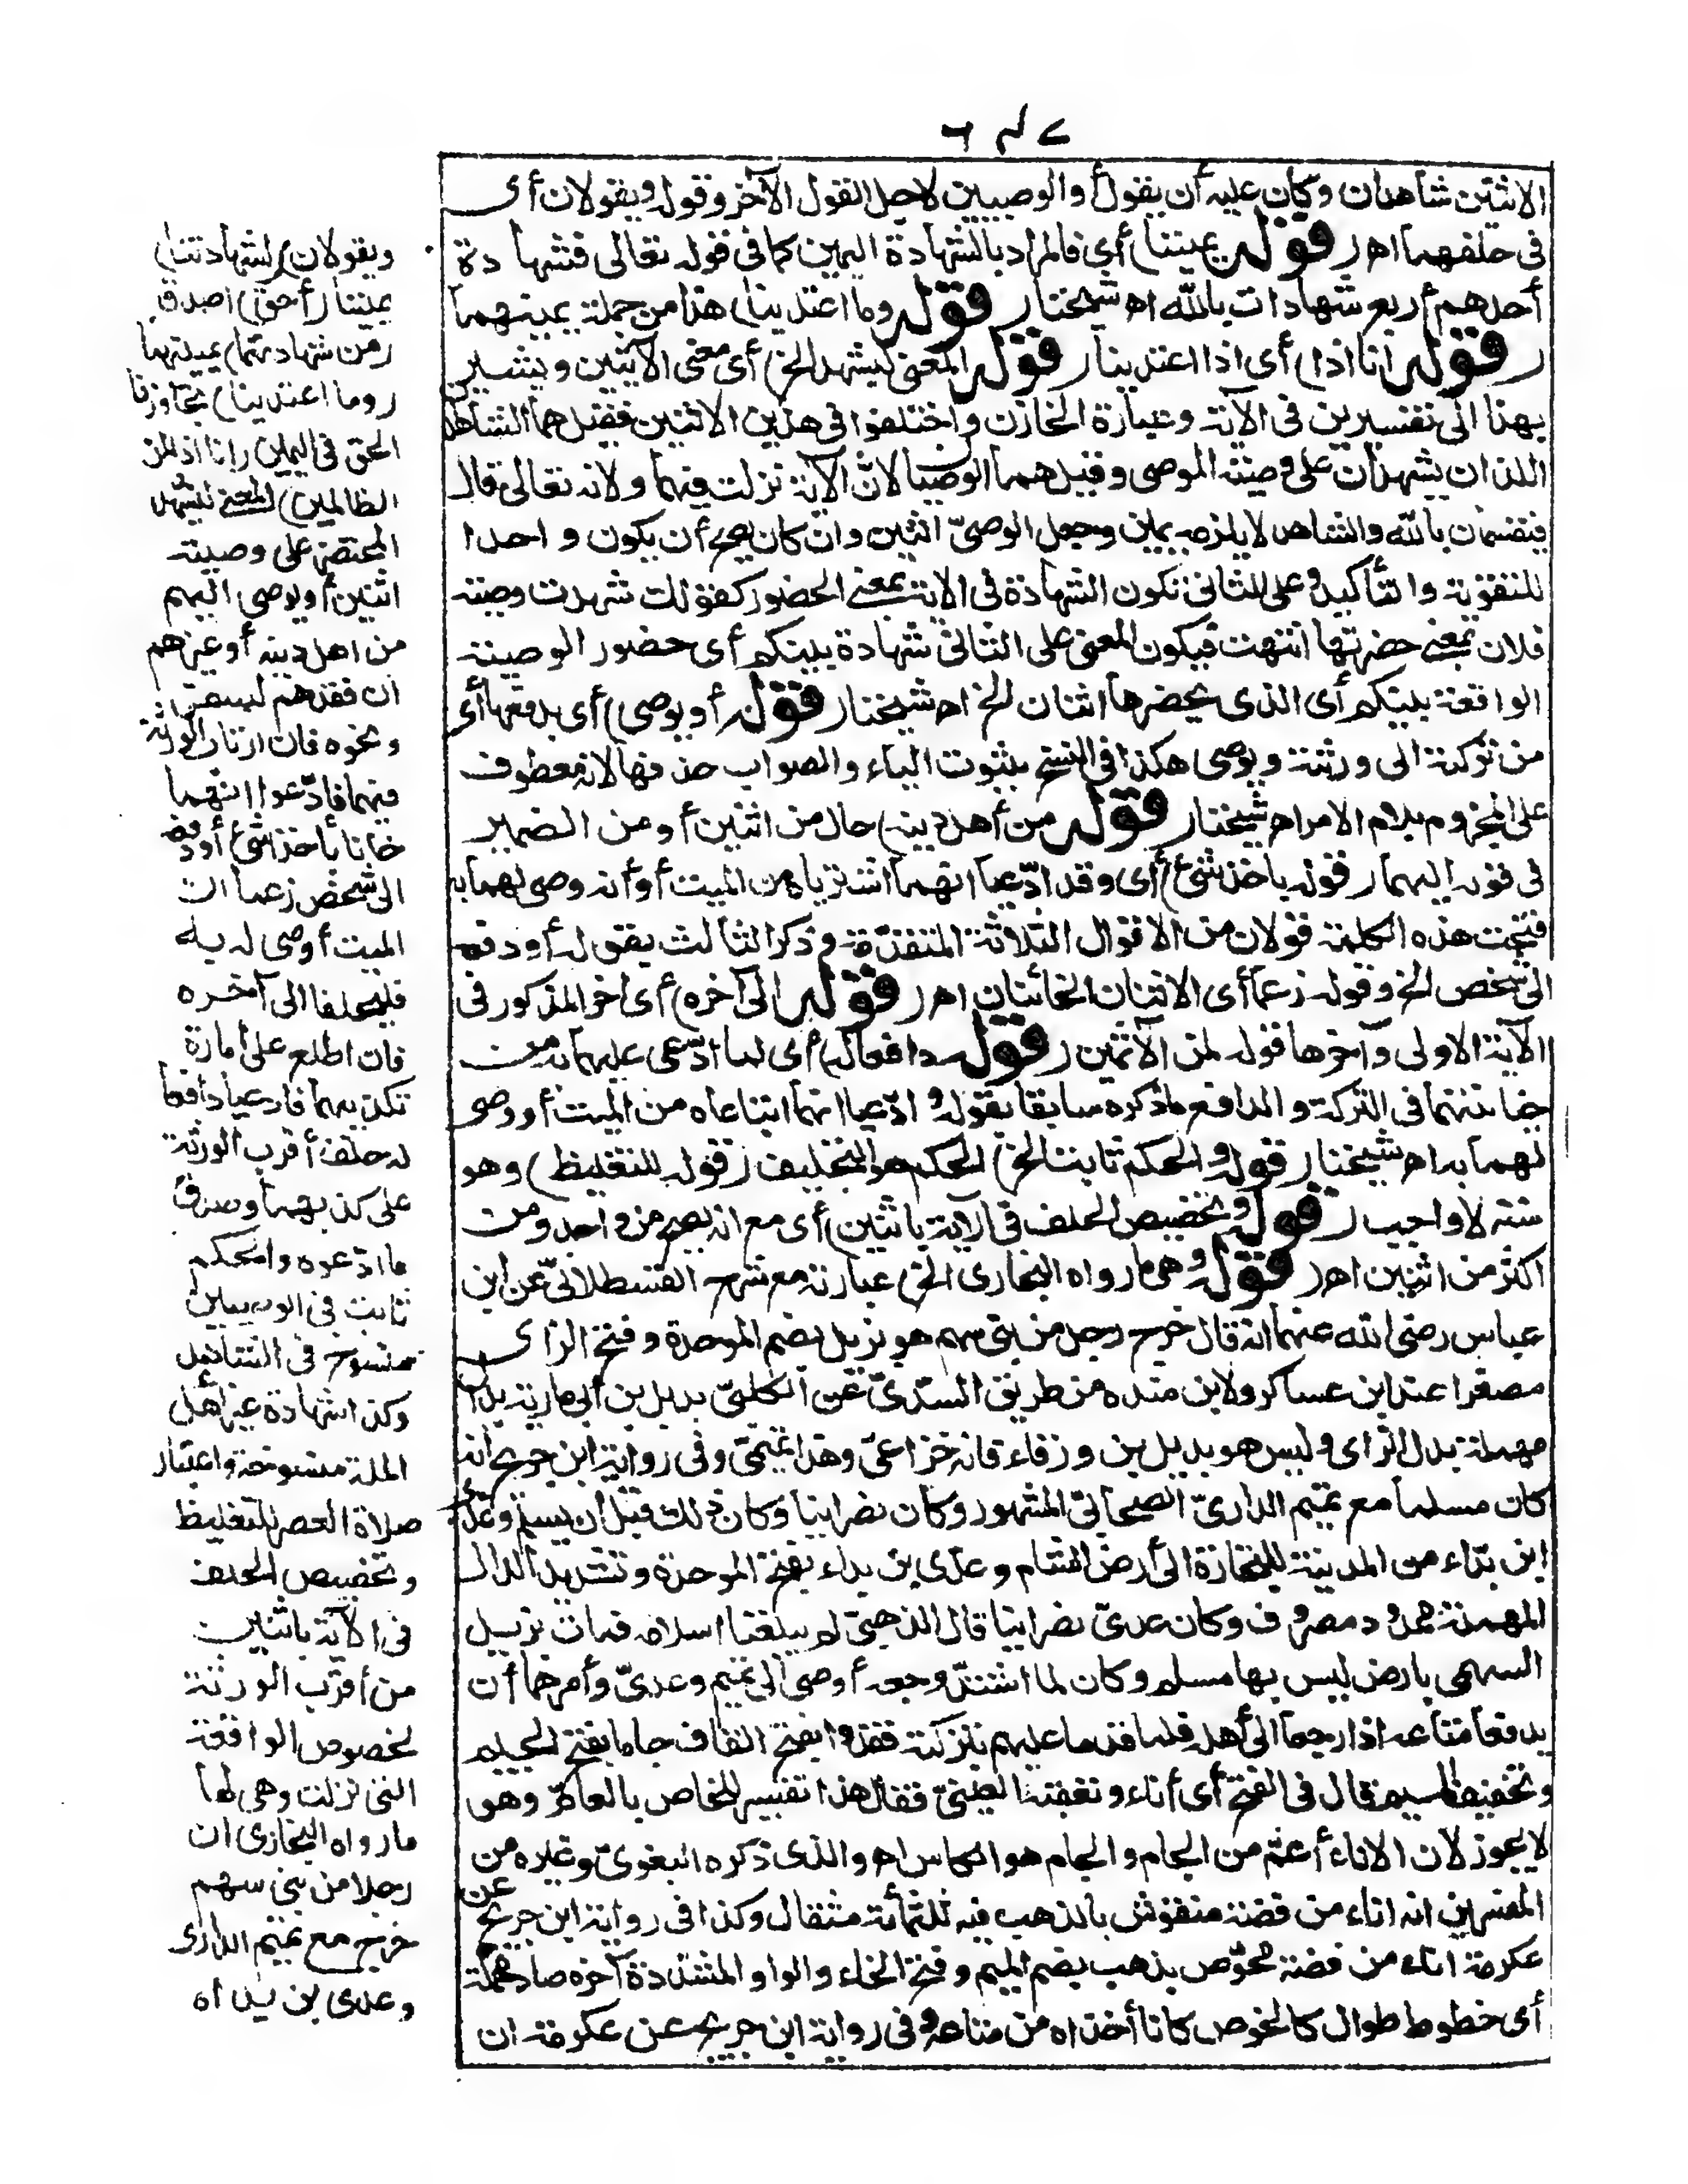 ٦٤٧
الاثنين شاهدان وكان عليه أن يقول أو الوصيين لاجل القول الآخر وقوله ويقولان أى
فى حلفهما اه (قوله يميننا) أى فالمراد بالشهادة اليمين كما فى قوله تعالى فشهادة
أحدهم أربع شهادات بالله اه شيخنا (قوله وما اعتدينا) هذا من جملة يمينهما
(قوله انا اذا) أى اذا اعتدينا (قوله المعنى ليشهد الخ) أى معنى الآيتين ويشير
بهذا الى تفسيرين فى الآية وعبارة الخازن واختلفوا فى هذين الاثنين فقيل هما الشاهدان
اللذان يشهدان على وصية الموصى وقيل هما الوصيان لانّ الآية نزلت فيهما ولانه تعالى قال
فيقسمان بالله والشاهد لا يلزمه يمين وجعل الوصىّ اثنين وان كان يصح أن يكون واحدا
للتقوية والتأكيد وعلى الثانى تكون الشهادة فى الاية بمعنى الحضور كقولك شهدت وصية
فلان بمعنى حضرتها انتهت فيكون المعنى على الثانى شهادة بينكم أى حضور الوصية
الواقعة بينكم أى الذى يحضرها اثنان الخ اه شيخنا (قوله أو يوصى) أى يدفعها أى
من تركته الى ورثته ويوصى هكذا فى النسخ بثبوت الياء والصواب حذفها لانه معطوف
على المجزوم بلام الامر اه شيخنا (قوله من أهل دينه) حال من اثنين أو من الضمير
فى قوله اليهما (قوله باخذ شئ) أى وقد ادّعيا انهما اشترياه من الميت أو أنه وصى لهما به
فتحت هذه الكلمة قولان من الاقوال الثلاثة المتقدّمة وذكر الثالث بقوله أو دفعه
الى شخص الخ وقوله زعما أى الاثنان الخائنان اه (قوله الى آخره) أى اخر المذكور فى
الآية الاولى وآخرها قوله لمن الآثمين (قوله دافعا له) أى لما ادّعى عليهما به من
خيانتهما فى التركة والدافع ما ذكره سابقا بقوله وادّعيا انهما ابتاعاه من الميت أو وصى
لهما به اه شيخنا (قوله والحكم ثابت الخ) الحكم هو التحليف (قوله للتغليظ) وهو
سنة لا واجب (قوله وتخصيص الحلف فى الآية باثنين) أى مع انه يصح من واحد ومن
اكثر من اثنين اه (قوله وهى ما رواه البخارى الخ) عبارته مع شرح القسطلانىّ عن ابن
عباس رضى الله عنهما انه قال خرج رجل من بنى سهم هو بزيل بضم الموحدة وفتح الزاى
مصغرا عند ابن عساكر ولابن منده من طريق السدّىّ عن الكلبىّ بديل بن أبى مارية بدال
مهملة بدل الزاى وليس هو بديل بن ورقاء فانه خزاعىّ وهذا تميمىّ وفى رواية ابن جريج أنه
كان مسلما مع تميم الدارىّ الصحابىّ المشهور وكان نصرانيا وكان ذلك قبل أن يسلم وعدى
ابن بدّاء من المدينة للتجارة الى أرض الشام وعدى بن بداء بفتح الموحدة وتشديد الدال
المهملة ممدود مصروف وكان عدىّ نصرانيا قال الذهبىّ لم يبلغنا اسلامه فمات بزيل
السهمى بارض ليس بها مسلم وكان لما اشتدّ وجعه أوصى الى تميم وعدىّ وأمرهما أن
يدفعا متاعه اذا رجعا الى أهله فلما قدما عليهم بتركته فقدوا بفتح القاف جاما بفتح الجيم
وتخفيف الميم قال فى الفتح أى أناء وتعقبه العينىّ فقال هذا تفسير للخاص بالعامّ وهو
لا يجوز لان الاناء أعمّ من الجام والجام هو الكاس اه والذى ذكره البغوىّ وغيره من
المفسرين انه اناء من فضة منقوش بالذهب فيه ثلثمائة مثقال وكذا فى رواية ابن جريج عن
عكرمة اناء من فضة مخوّص بذهب بضم الميم وفتح الخاء والواو المشدّدة آخره صاد مهملة
أى خطوط طوال كالخوص كانا أخذاه من متاعه وفى رواية ابن جريج عن عكرمة ان
ويقولان (لشهادتنا)
يميننا (أحق) اصدق
(من شهادتهما) يمينهما
(وما اعتدينا) تجاوزنا
الحق فى اليمين (انا اذا لمن
الظالمين) المعنى ليشهد
المحتضر على وصيته
اثنين أو يوصى اليهم
من اهل دينه أو غيرهم
ان فقدهم لسفر
ونحوه فان ارتاب الورثة
فيهما فادّعوا انهما
خانا باخذ شئ أو دفعه
الى شخص زعما ان
الميت أوصى له به
فليحلفا الى آخره
فان اطلع على أمارة
تكذيبهما فادعيا دافعا
له حلف أقرب الورثة
على كذبهما وصدق
ما ادّعوه والحكم
ثابت فى الوصيين
منسوخ فى الشاهدين
وكذا شهادة غير أهل
الملة منسوخة واعتبار
صلاة العصر للتغليظ
وتخصيص الحلف
فى الآية باثنين
من أقرب الورثة
لخصوص الواقعة
التى نزلت وهى لها
ما رواه البخارى ان
رجلا من بنى سهم
خرج مع تميم الدارى
وعدى بن بداء